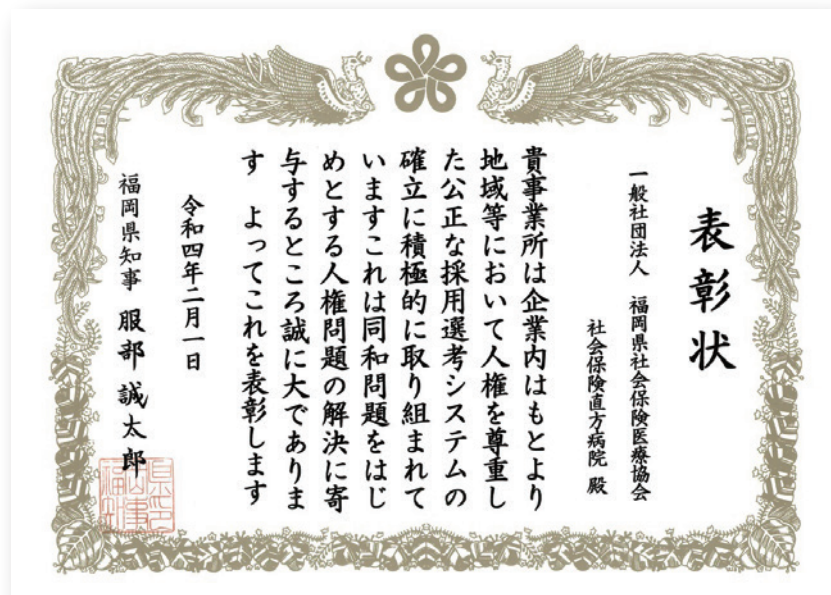 表彰状
一般社団法人 福岡県社会保険医療協会
社会保険直方病院 殿
貴事業所は企業内はもとより
地域等において人権を尊重し
た公正な採用選考システムの
確立に積極的に取り組まれて
いますこれは同和問題をはじ
めとする人権問題の解決に寄
与するところ誠に大でありま
す よってこれを表彰します
令和四年二月一日
福岡県知事 服部誠太郎